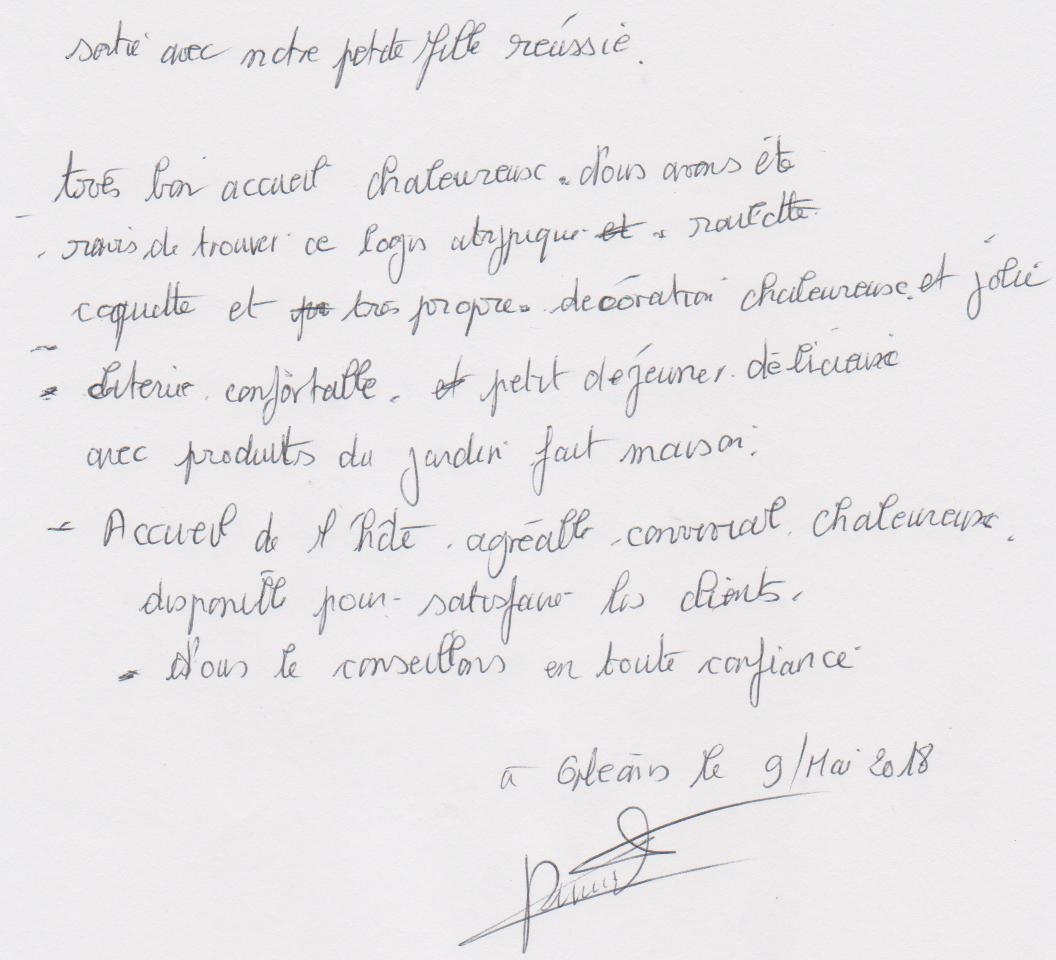 sortie avec notre petite fille reússie.
très bon accueil chaleureux. Nous avons été
- ravis de trouver ce logis atypique et. roulotte
coquette et très propre. décoration chaleureuse. et jolie
- Literie. confortable. et petit déjeuner. délicieux
avec produits du jardin fait maison.
- Accueil de l'hôte. agréable. convivial. chaleureux.
disponible pour satisfaire les clients.
- Nous le conseillons en toute confiance
à Orléans le 9/Mai 2018